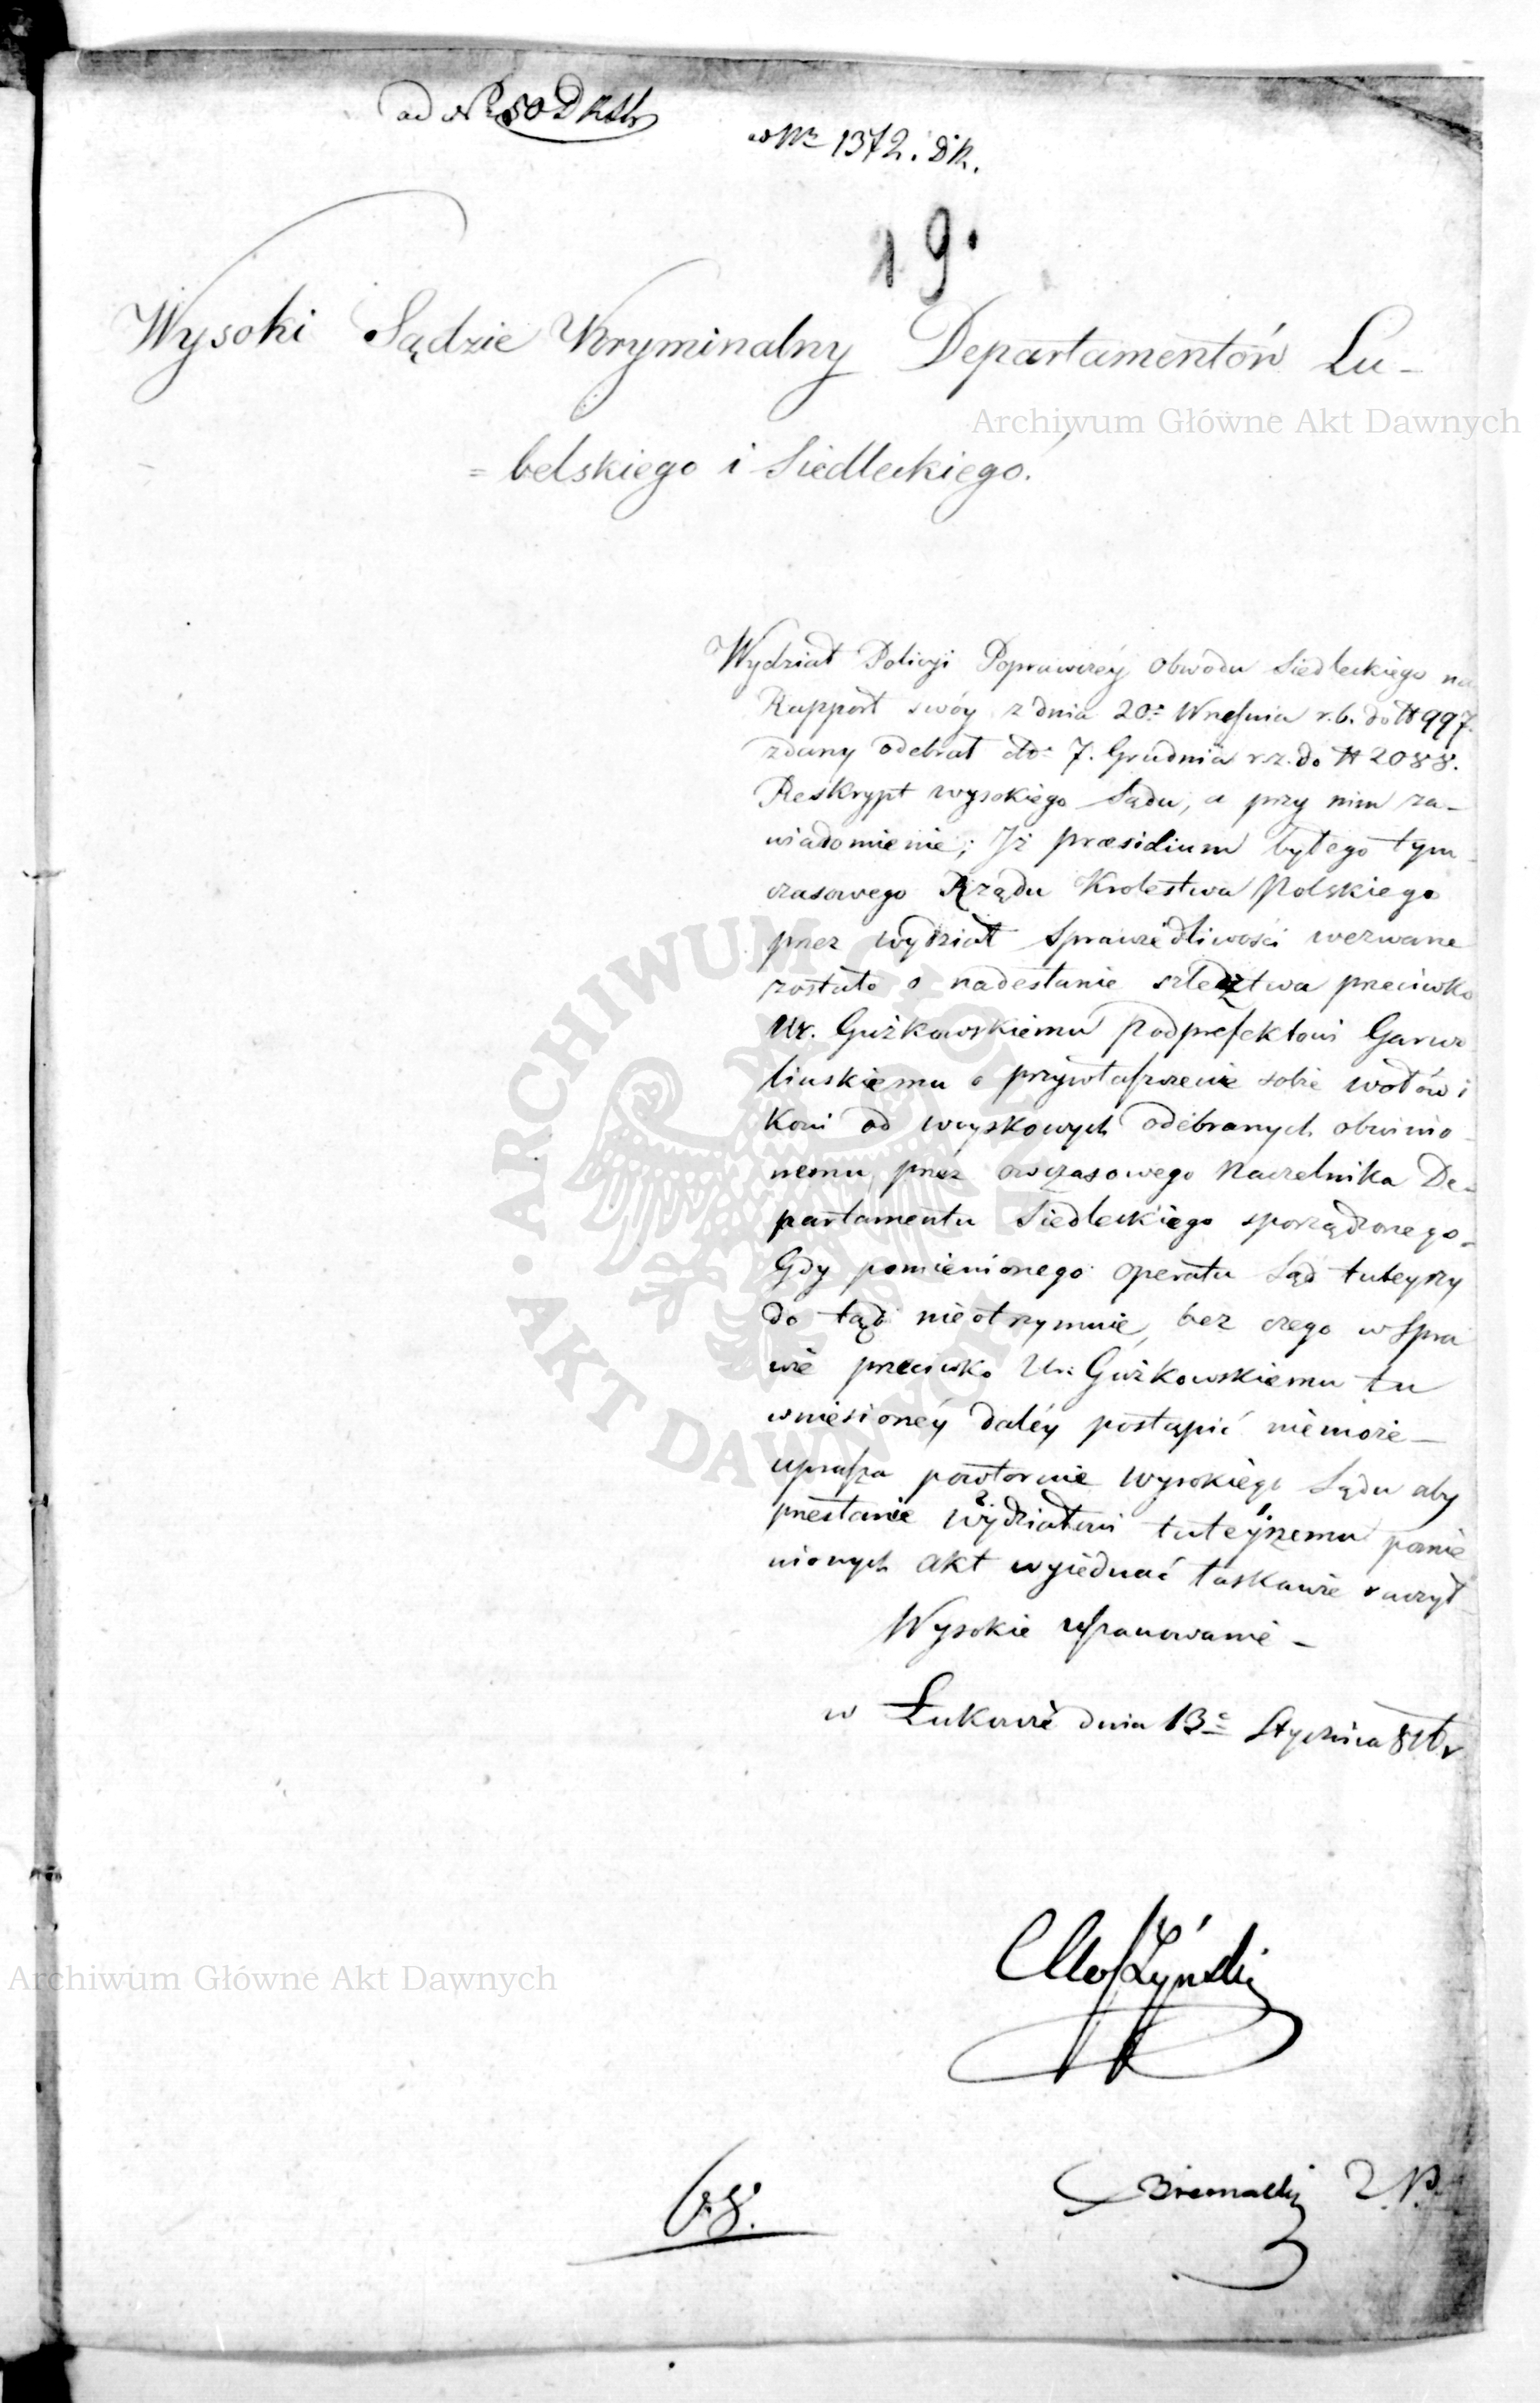 ad Nr 50 D
w Nr 1372. DK.
19.
Wysoki Sądzie Kryminalny Departamentów Lu-
Archiwum Główne Akt Dawnych
= belskiego i Siedleckiego!
Wydział Policyi Poprawczéy Obwodu Siedleckiego na
Rapport swóy z dnia 20º Września r.b. do N 997.
zdany odebrał dto 7. Grudnia r.z. do N 2088.
Reskrypt wysokiego Sądu, a przy nim za-
wiadomienie; Jż præsidium byłego tym
czasowego Rządu Krolestwa Polskiego
przez wydział Sprawiedliwości wezwane
zostało o nadesłanie szledztwa przeciwko
Ur. Gużkowskiemu Podprefektowi Garwo
linskiemu o przywłaszczenie sobie wołów i
Koni od woyskowych odebranych obwinio-
nemu, przez owczasowego Naczelnika De-
partamentu Siedleckiego sporządzonego-
Gdy pomienionego operatu Sąd tuteyszy
do tąd nieotrzymuie, bez czego w Spra
wie przeciwko Ur. Gużkowskiemu tu
wniesionéy daléy postąpić niemoże-
uprasza powtornie Wysokiego Sądu aby
przesłanie Wydziałowi tuteyszemu pomie
nionych akt wyiednać łaskawie raczył-
Wysokie uszanowanie-
w Łukowie dnia 13º Stycznia 816 r
ARCHIWUM GŁÓWNE AKT DAWNYCH
Archiwum Główne Akt Dawnych